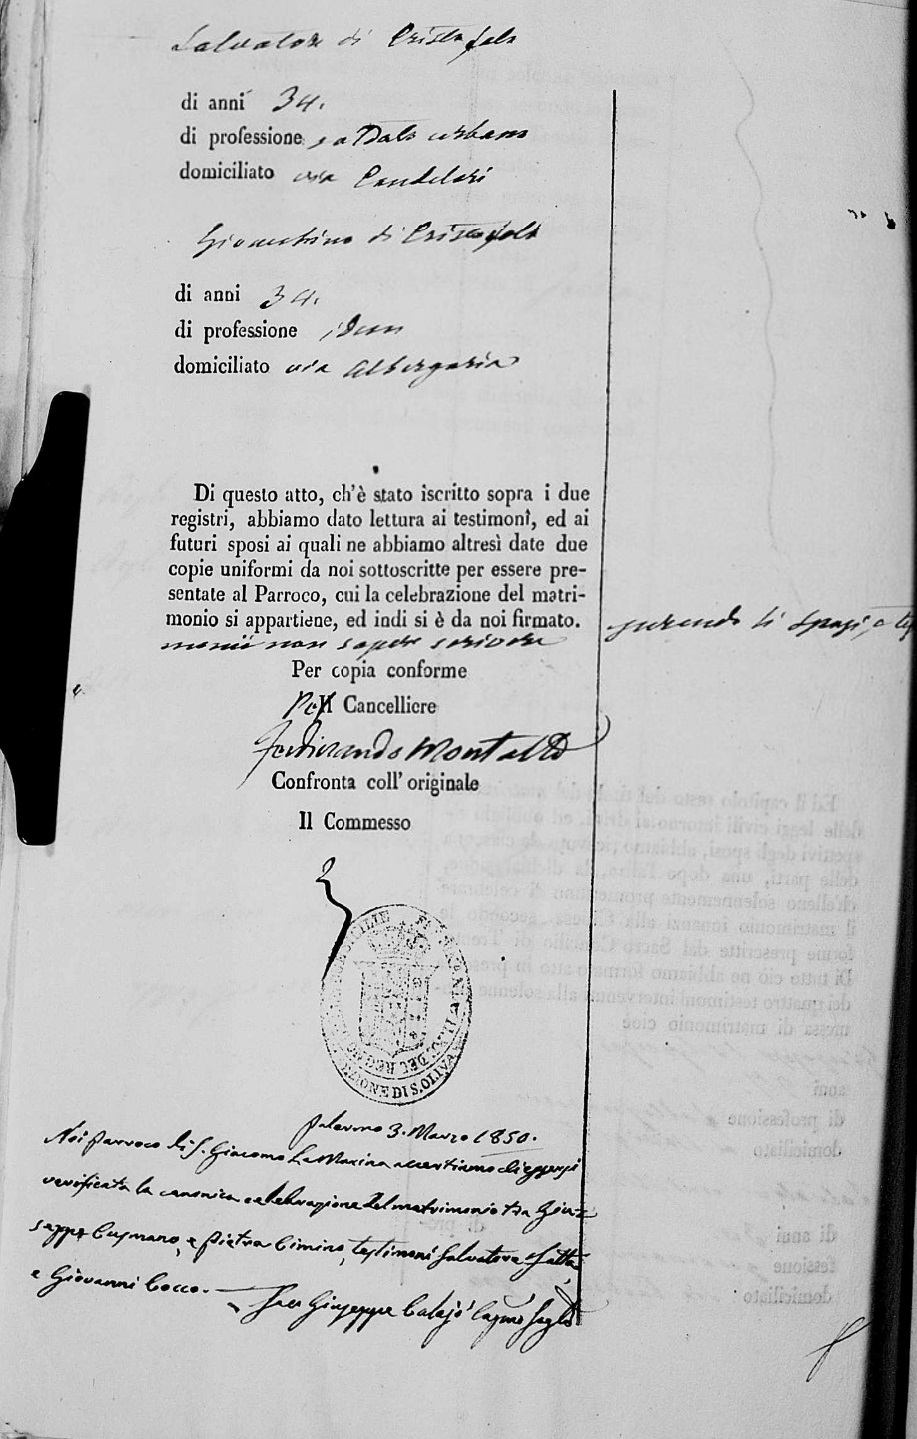 Salvatore di Cristofalo
di anni 34.
di professione soldato urbano
domiciliato via Candelari
Gioacchino di Cristofalo
di anni 34.
di professione idem
domiciliato via Albergaria
Di questo atto, ch'è stato iscritto sopra i due
registri, abbiamo dato lettura ai testimonî, ed ai
futuri sposi ai quali ne abbiamo altresì date due
copie uniformi da noi sottoscritte per essere pre-
sentate al Parroco, cui la celebrazione del matri-
monio si appartiene, ed indi si è da noi firmato.
monii non sapere scrivere
Per copia conforme
Pel Cancelliere
Ferdinando Montalto
Confronta coll' originale
Il Commesso
ZIONE DI S. OLIVA
Palermo 3. Marzo 1850.
Noi Parroco di S. Giacomo La Mazina accertiamo di essersi
verificata la canonica celebrazione del matrimonio tra Giu-
seppe Cusmano, e Pietra Cimino, testimoni Salvatore
e Giovanni Cocco.
Giuseppe